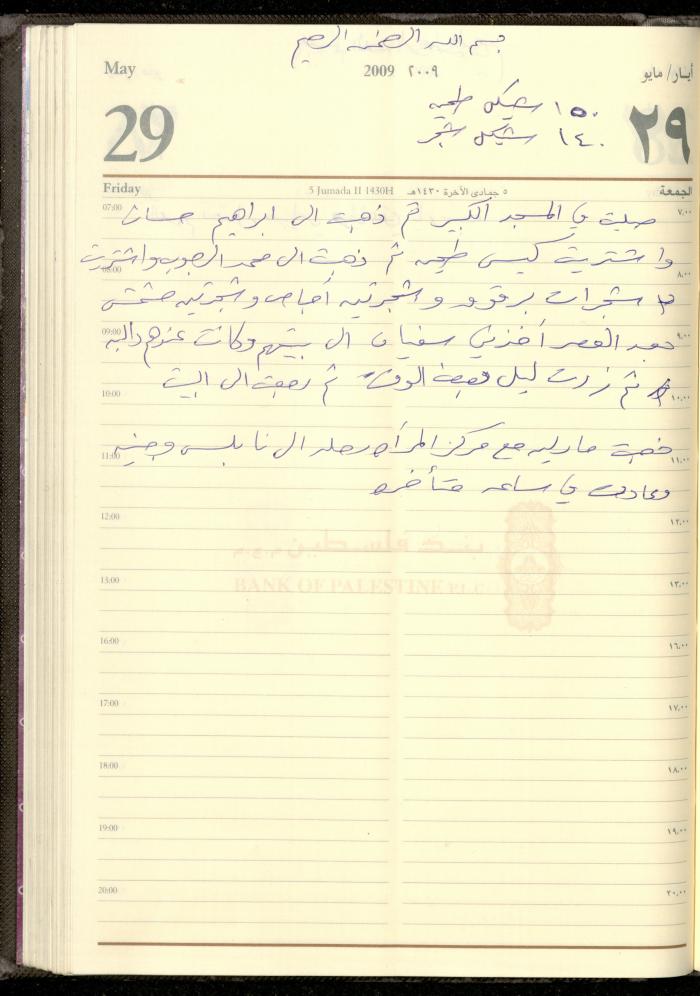 بسم الله الرحمن الرحيم
May
2009 ٢٠٠٩
أيار/ مايو
29
١٥٠ شيكل طحين
١٤٠ شيكل شجر
٢٩
Friday
5 Jumada II 1430H ٥ جمادى الآخرة ١٤٣٠هـ
الجمعة
07:00 ٧,٠٠
صليت في المسجد الكبير ثم ذهبت ال ابراهيم حسان
واشتريت كيس طحين ثم ذهبت ال محمد واشتريت
08:00 ٨,٠٠
٣ شجرات برقوق وشجرتين أجاص وشجرتين مشمش
09:00 ٩,٠٠
بعد العصر أخذني سفيان ال بيتهم وكانت عندهم داليه
ثم زرت ليل الوقت ثم رجعت ال البيت
10:00 ١٠,٠٠
ذهبت مع مركز المرأه رحله ال نابلس وجنين
11:00 ١١,٠٠
وعادت في ساعه متأخره
12:00 ١٢,٠٠
بنك فلسطين م.ع.م
BANK OF PALESTINE P.L.C
13:00 ١٣,٠٠
16:00 ١٦,٠٠
17:00 ١٧,٠٠
18:00 ١٨,٠٠
19:00 ١٩,٠٠
20:00 ٢٠,٠٠